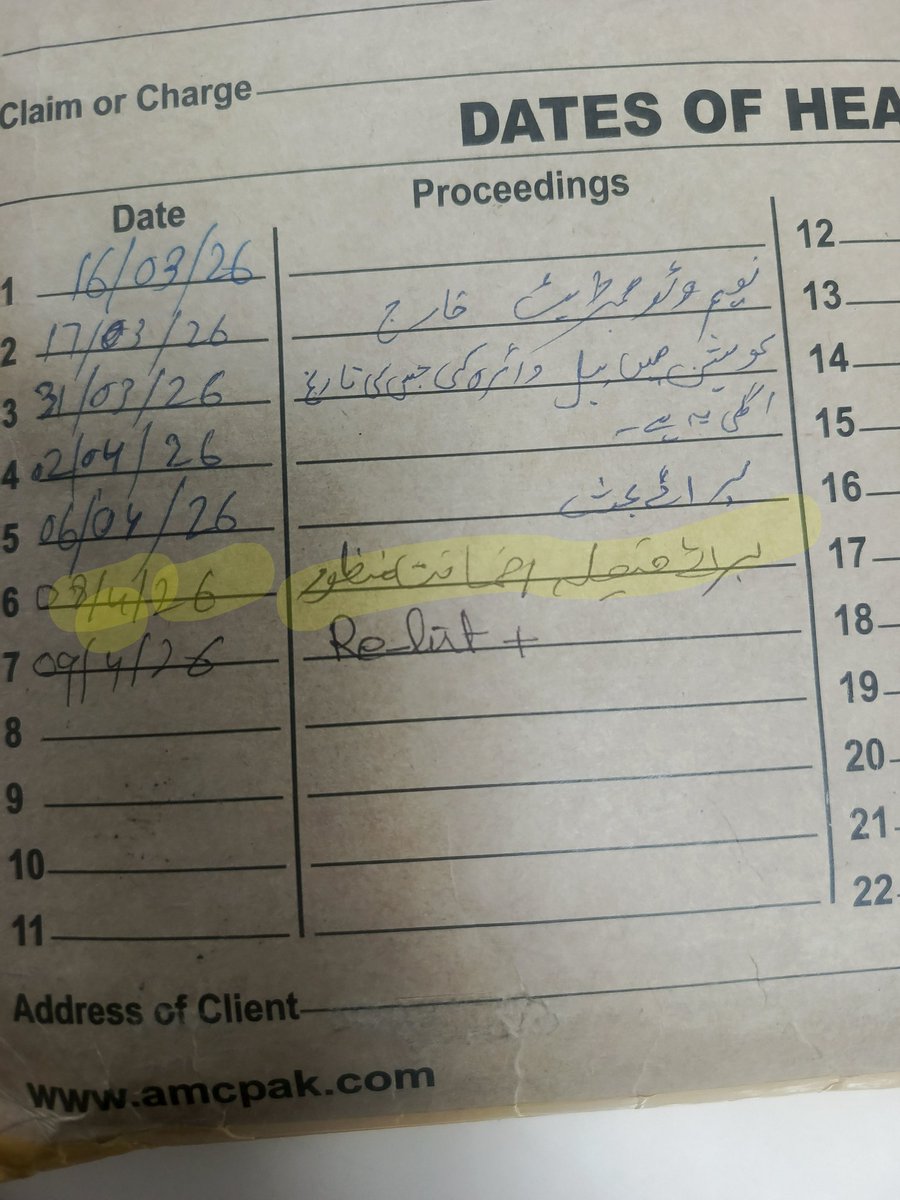 Claim or Charge
DATES OF HEA
Date Proceedings
1 16/03/26
2 17/03/26 خارج
3 31/03/26 میں بیل دائرہ کی جس کی تاریخ
4 02/04/26 اگلی یہ ہے۔
5 06/04/26 برائے بحث
6 08/4/26 برائے فیصلہ ضمانت منظور
7 09/4/26
8
9
10
11
12
13
14
15
16
17
18
19
20
21
22
Address of Client
www.amcpak.com